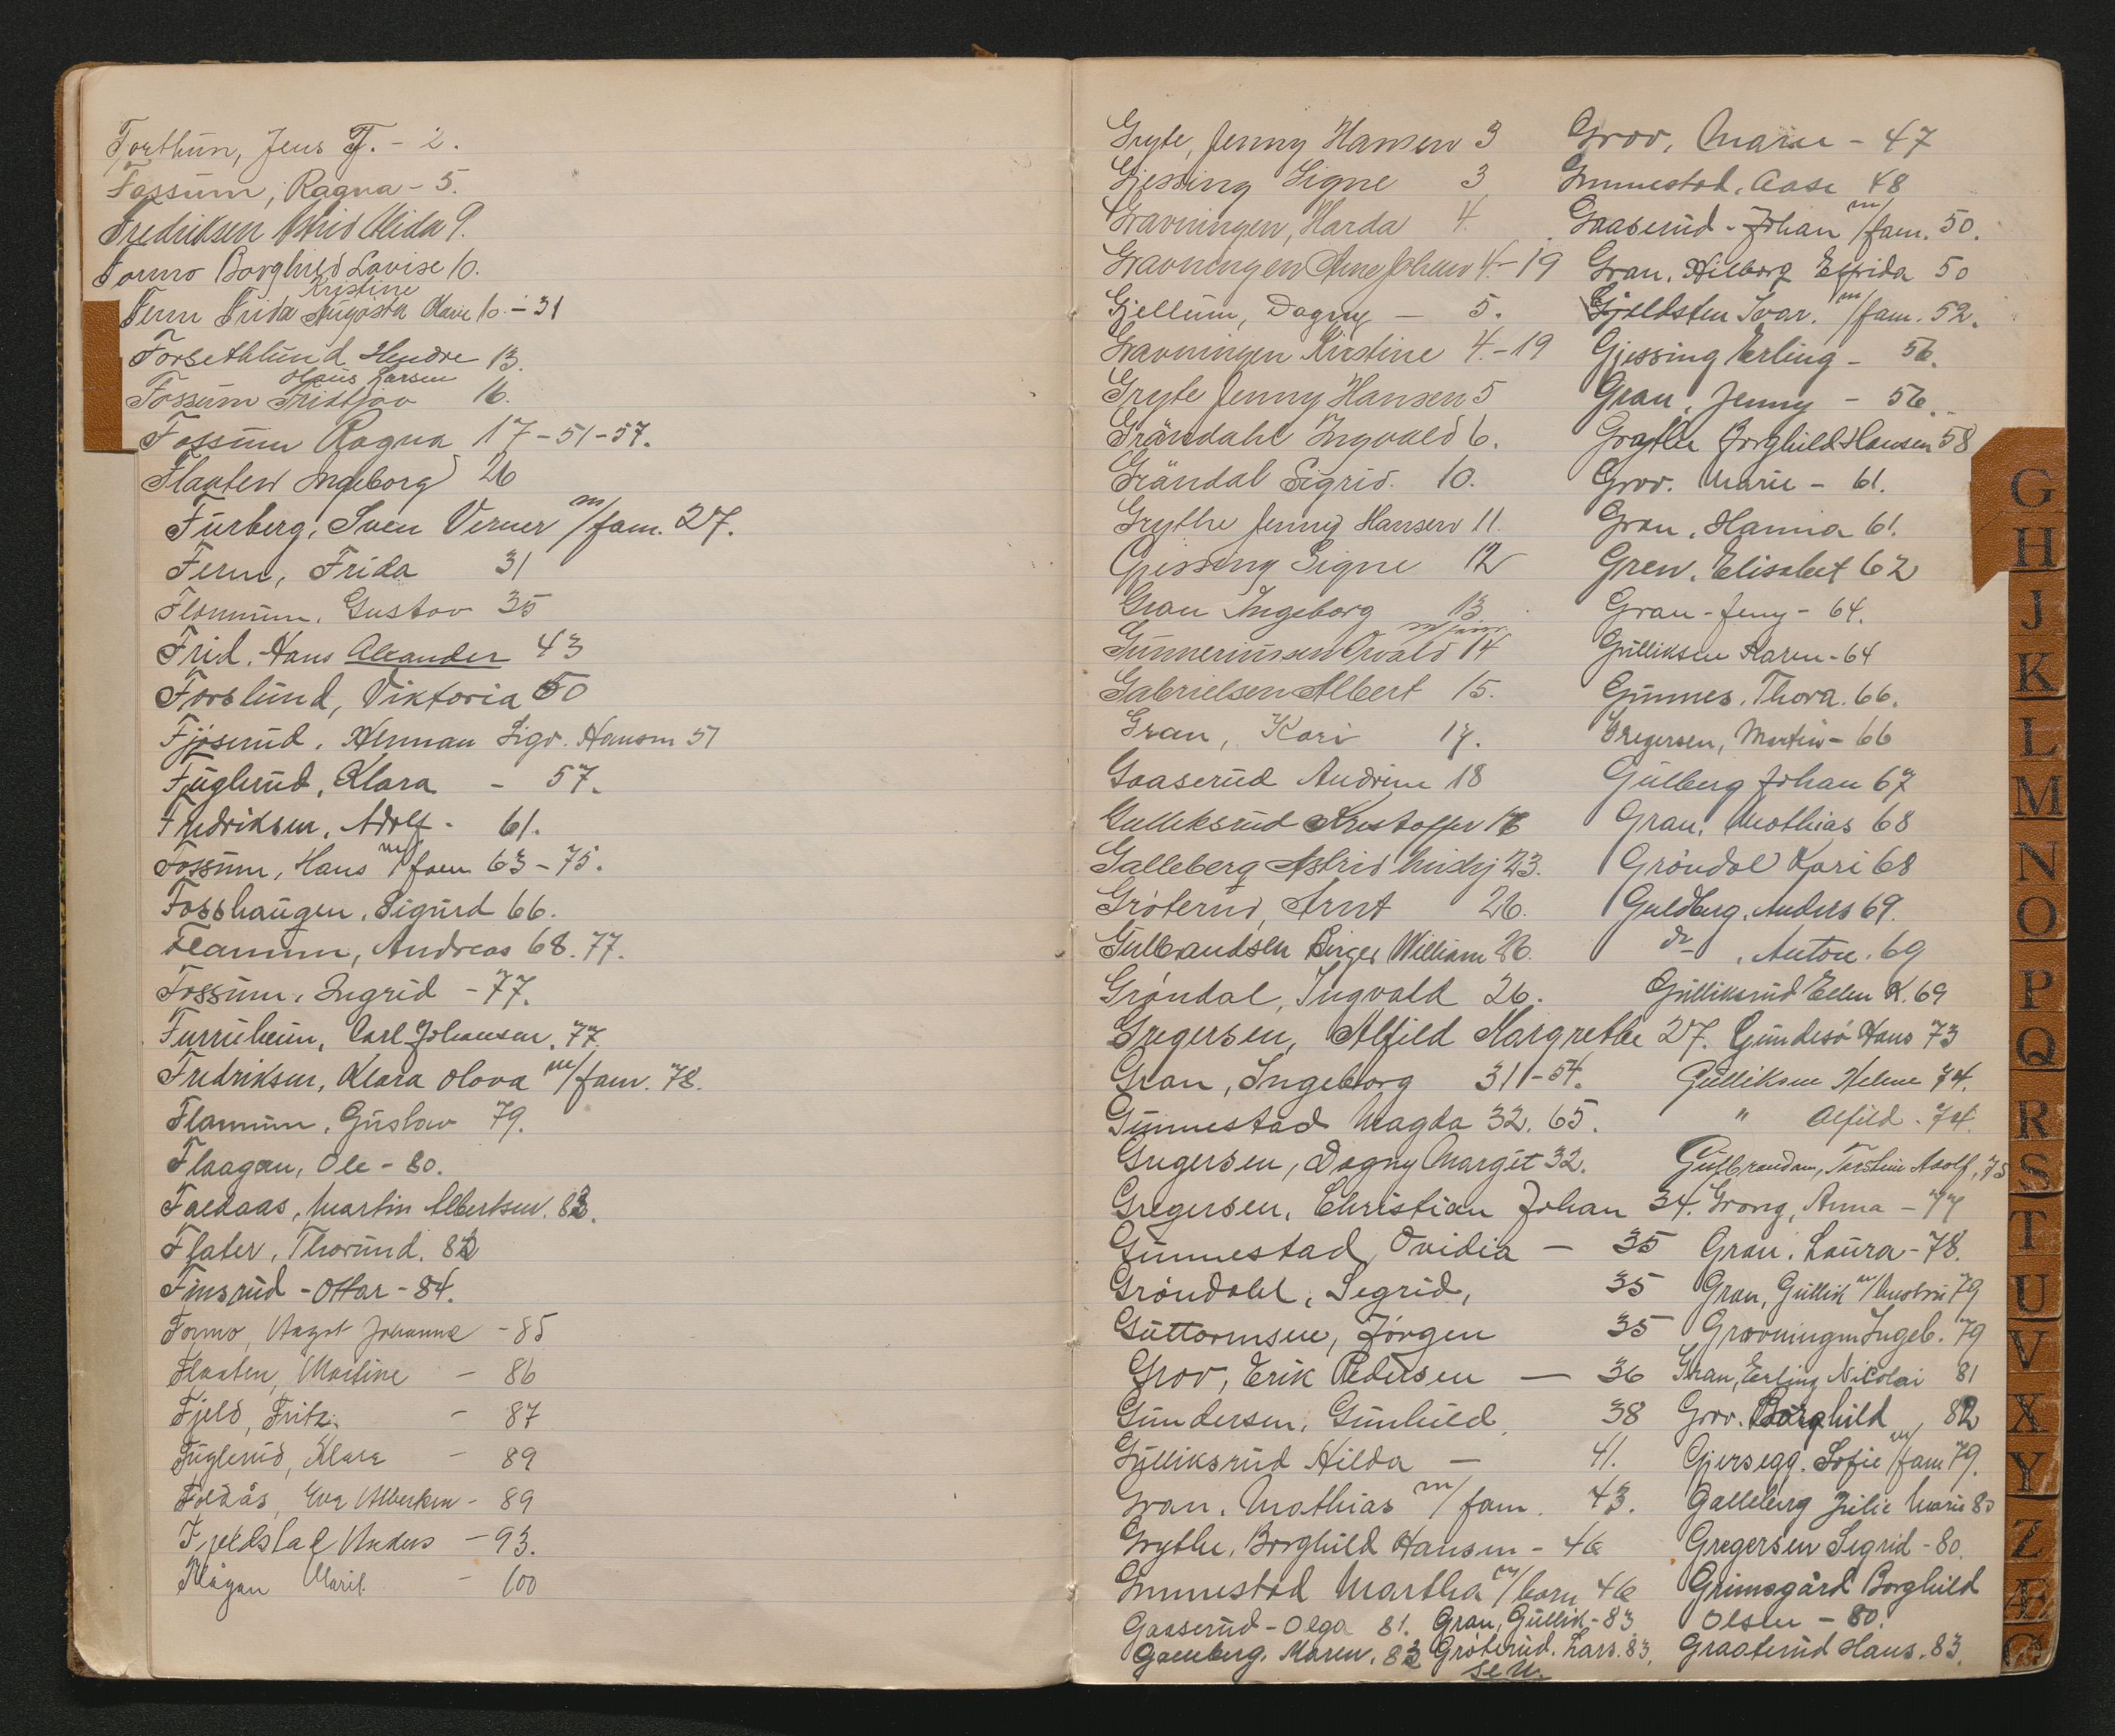 Forthun, Jens Fj. - 2.
Fossum, Ragna - 5.
Fredriksen Astrid Alida 9.
Formo Borghild Lovise 10.
Kristine
Fern Frida Augusta Marie 10. - 31
Forsethlund Hendre 13.
Olaus Larsen
Fossum Fridtjov 16.
Fossum Ragna 17 - 51 - 57.
Flaaten Ingeborg 26
Furberg, Sven Verner m/fam. 27.
Fern, Frida 31
Flannum, Gustav 35
Frid, Hans Alexander 43
Forslund, Viktoria 50
Fjøserud, Herman Sigv. Hansen 51
Fuglerud, Klara - 57.
Fredriksen, Adolf - 61.
Fossum, Hans m/fam 63 - 75.
Fosshaugen, Sigurd 66.
Flannum, Andreas 68. 77.
Fossum, Ingrid - 77.
Furruheim, Carl Johansen, 77.
Fredriksen, Klara Olova m/fam. 78.
Flannum, Gustav 79.
Flaagan, Ole - 80.
Faldaas, Martin Albertsen. 83.
Flater, Thorund. 82
Finsrud - Ottar - 84.
Formo, Margot Johanne - 85
Flaaten, Martine - 86
Fjeld, Fritz. - 87
Fuglerud, Klara - 89
Foldås, Eva Albertsen - 89
Fjeldstad Anders - 93.
Flågan Marit - 100
Gryte, Jenny Hansen 3
Gjessing Signe 3
Gravningen, Harda 4.
Gravningen Arne Johan 4. - 19
Gjellum, Dagny - 5.
Gravningen Kirstine 4. - 19
Gryte Jenny Hansen 5
Grändahl Ingvald 6.
Grändal Sigrid. 10.
Grythe Jenny Hansen 11.
Gjessing Signe 12
Gran Ingeborg 13
m/fam.
Gunneriussen Osvald 14
Gabrielsen Albert 15.
Gran, Kari 17.
Gaaserud Andrine 18
Gulliksrud Kristoffer 18
Galleberg Astrid 23.
Gröterud, Arnt 26.
Gulbrandsen Birger William 26.
Gröndal, Ingvald 26.
Gregersen, Alfild Margrethe 27.
Gran, Ingeborg 31 - 54.
Gunnestad Magda 32. 65.
Gregersen, Dagny Margit 32.
Gregersen, Christian Johan 34.
Gunnestad, Ovidia - 35
Gröndahl, Sigrid, 35
Guttormsen, Jörgen 35
Grov, Erik Pedersen - 36
Gundersen, Gunhild, 38
Gulliksrud Hilda - 41.
Gran, Mathias m/fam. 43.
Grythe, Borghild Hansen - 46
Gunnestad Martha m/barn 46
Gaaserud - Olga 81. Gran, Gullik - 83
Galleberg, Maren, 83 Gröterud. Lars. 83.
se u.
Grov, Marie - 47
Gunnestad, Aase 48
Gaaserud - Johan m/fam. 50.
Gran, Hilborg Elfrida 50
Gjeldsten Ivar. m/fam. 52.
Gjessing Erling - 56.
Gran, Jenny - 56.
Grythe Borghild Hansen 58
Grov. Marie - 61.
Gran, Hanna 61.
Gren, Elisabet 62
Gran - Jeny - 64.
Gulliksen Karen - 64
Gunnes, Thora. 66.
Gregersen, Martin - 66
Gulberg Johan 67
Gran, Mathias 68
Gröndal Kari 68
Guldberg, Anders 69.
do , Anton. 69
Gulliksrud Ellen K. 69
Gundesö Hans 73
Gulliksen Helene 74.
" Alfild. 74.
Gulbrandsen, Torstein Adolf, 75
Grong, Anna - 77
Gran, Laura - 78.
Gran, Gullik m/hustru 79
Gravningen Ingeb. 79
Gran, Erling Nikolai 81
Grov. Borghild, 82
Gjersegg. Sofie m/fam 79.
Galleberg Julie Marie 80
Gregersen Sigrid - 80.
Grimsgård Borghild
Olsen - 80.
Graaterud Hans. 83.
G
H
J
K
L
M
N
O
P
Q
R
S
T
U
V
X
Y
Z
Æ
Ø